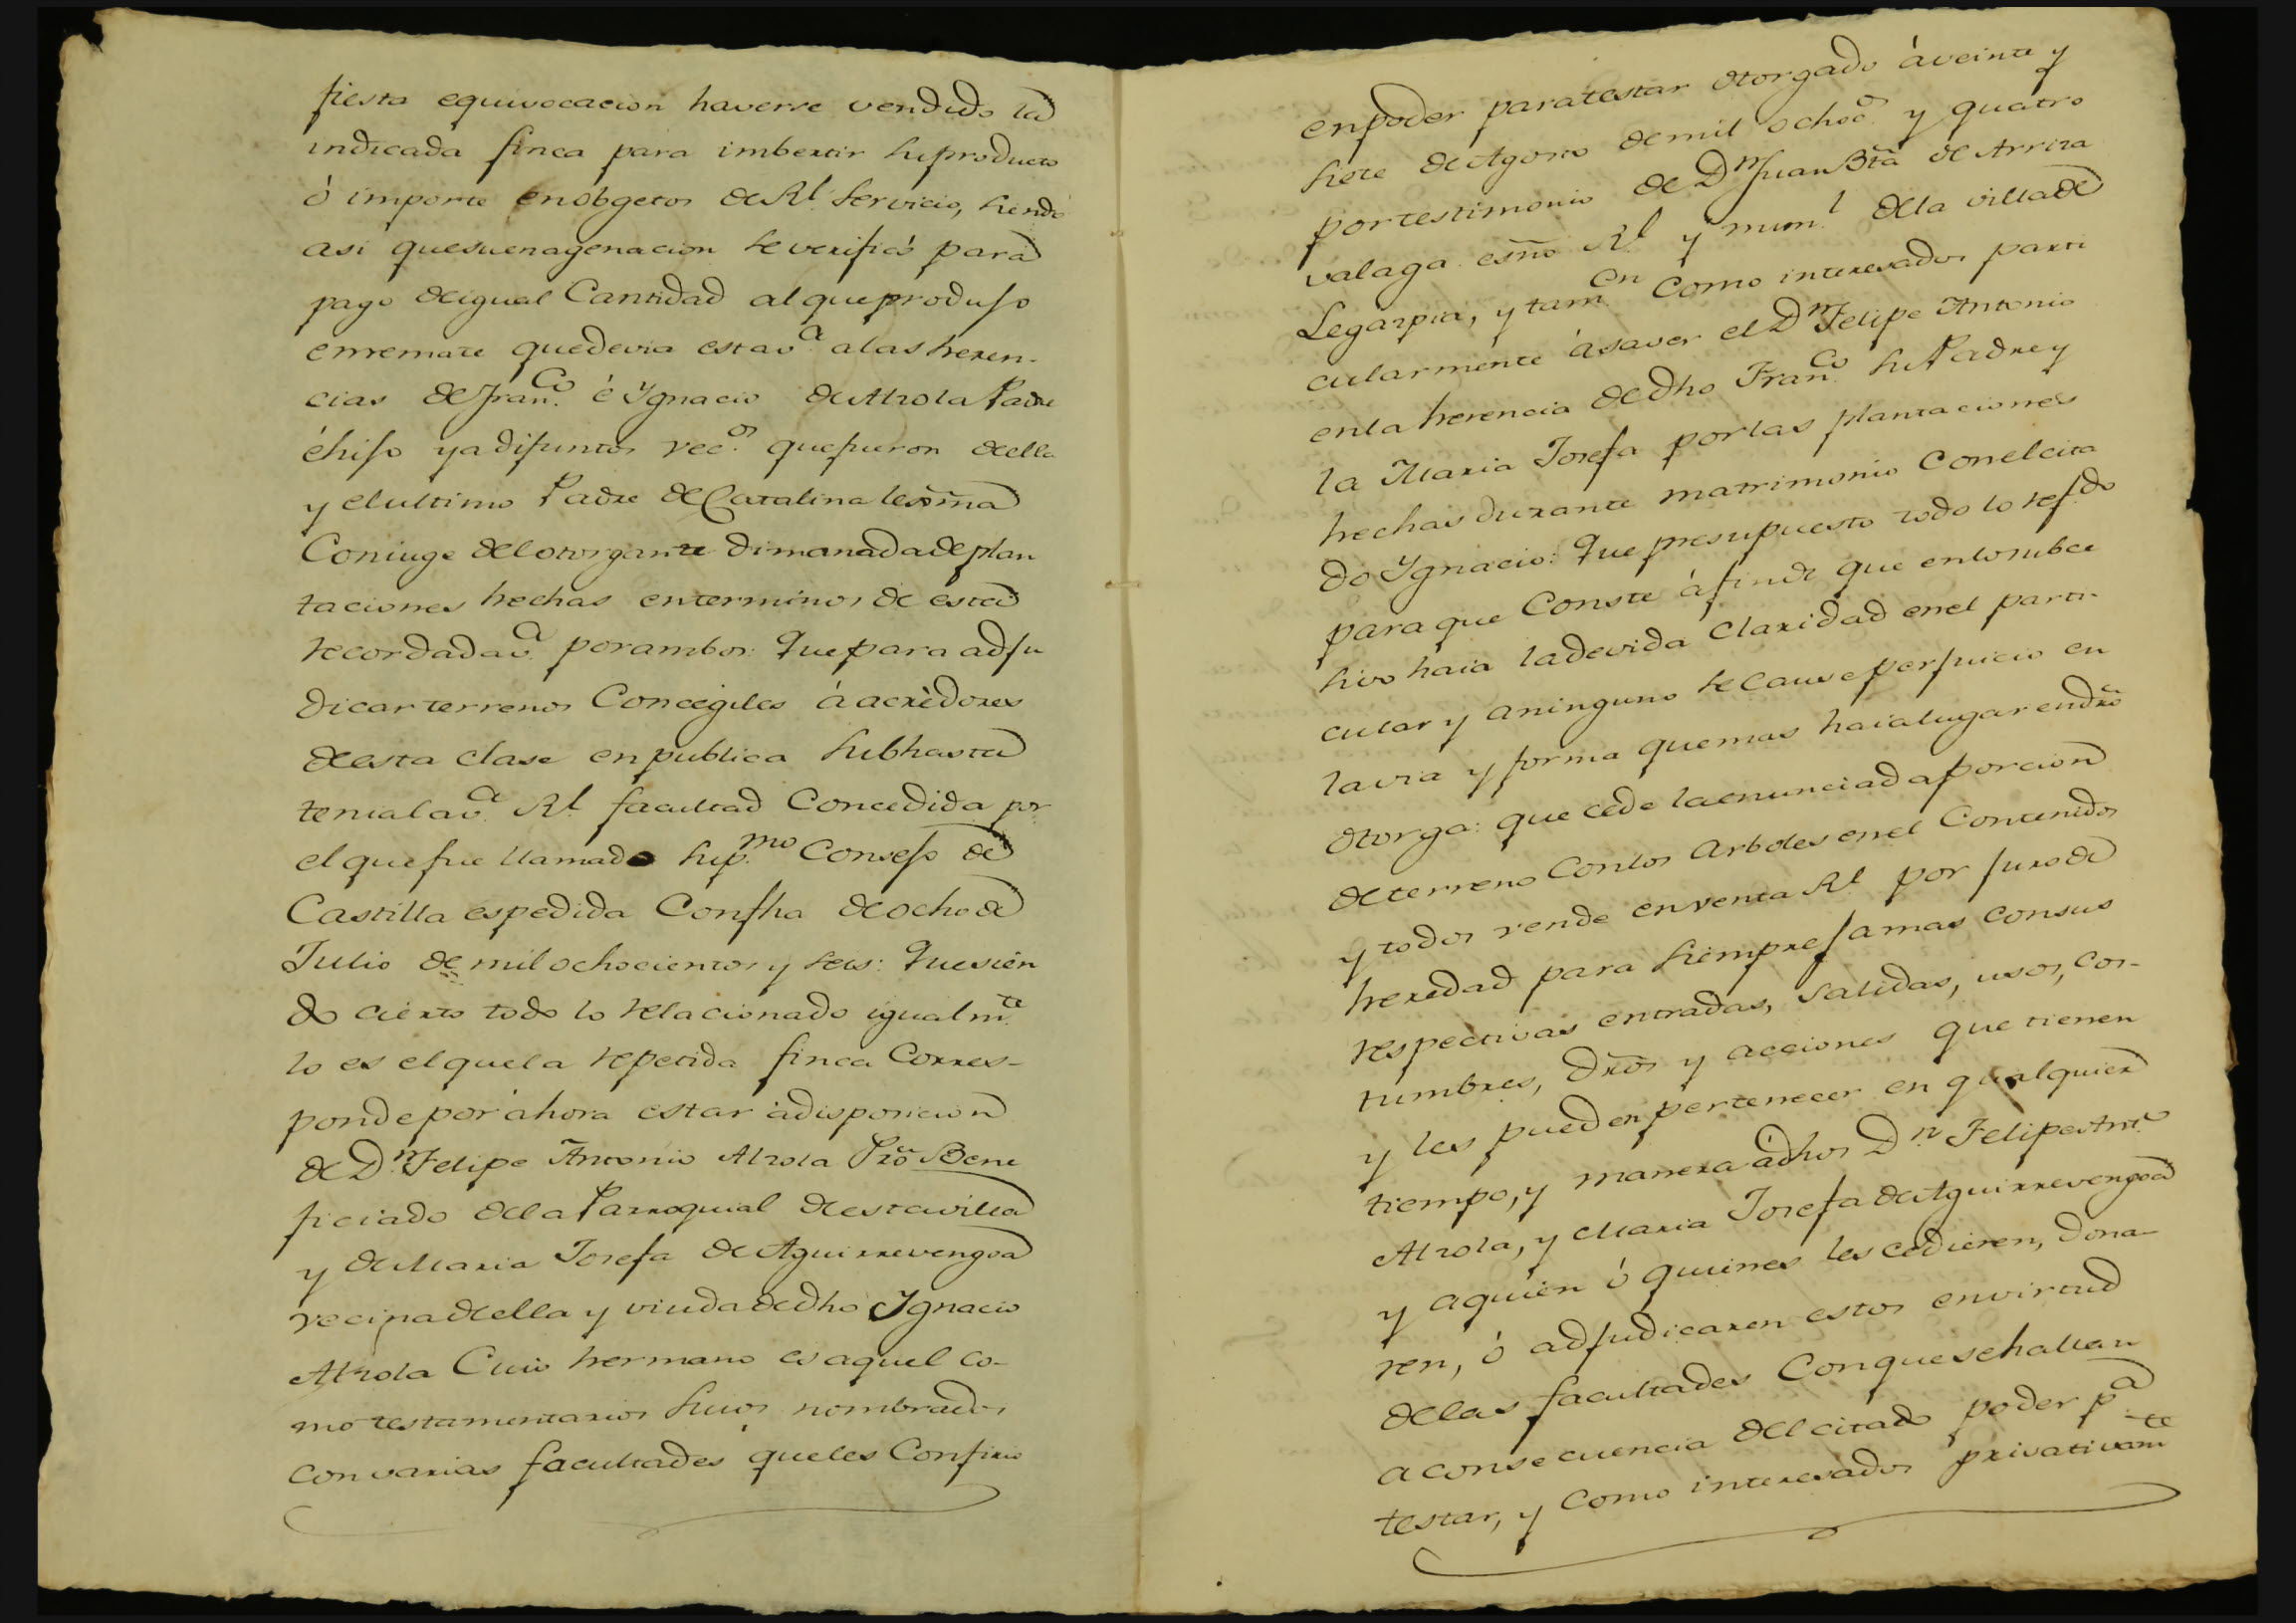 fiesta equivocacion haverse vendido la
indicada finca para imbertir su producto
ó importe en obgetos de Rl. Servicio, siendo
asi que su enagenacion se verificó para
pago de igual Cantidad al que produjo
en remate que devia esta va. a las heren-
cias de Franco. é Ygnacio de Alzola Padre
é hijo ya difuntos vecos. que fueron de ella
y el ultimo Padre de Catalina lexma
Coniuge del otorgante dimanada de plan
taciones hechas en terminos de esta
recordada va. por ambos: Que para adju
dicar terrenos Concegiles á acrèdores
de esta clase en publica subhasta
tenia la va. Rl. facultad Concedida por
el que fue llamado Supmo. Consejo de
Castilla espedida Con fha de ocho de
Julio de mil ochocientos y seis: Que sien
do cierto todo lo relacionado igualmte.
lo es el que la repetida finca Corres-
ponde por ahora estar à disposicion
de Dn. Felipe Antonio Alzola Pro Bene
ficiado de la Parroquial de esta villa
y de Maria Josefa de Aguirrevengoa
vecina de ella y viuda de dho Ygnacio
Alzola Cuio hermano es aquel co-
mo testamentarios suios nombrados
con varias facultades que les Confirio
en poder para testar otorgado á veinte y
siete de Agosto de mil ochocs. y quatro
por testimonio de Dn. Juan Bta de Arriza
valaga esno Rl. y numl. de la villa de
Legazpia, y tamcn. Como interesados parti
cularmente á saver el Dn. Felipe Antonio
en la herencia de dho Franco. su Padre y
la Maria Josefa por las plantaciones
hechas durante matrimonio Con el cita
do Ygnacio: Que presupuesto todo lo refdo.
para que Conste á fin de que en lo subce
sivo haia la devida Claridad en el parti-
cular y a ninguno se Cause perjuicio en
la via y forma que mas haia lugar en dro
otorga: que cede la enunciada porcion
de terreno Con los Arboles en el Contenidos
y todos vende en venta Rl. por Juro de
heredad para siempre jamas con sus
respectivas entradas, salidas, usos, cos-
tumbres, dros y acciones que tienen
y les pueden pertenecer en qualquier
tiempo, y manera à dhos Dn. Felipe Anto.
Alzola, y Maria Josefa de Aguirrevengoa
y a quien ó quienes les cedieren, dona-
ren, ó adjudicaren estos en virtud
de las facultades Con que se hallan
a consecuencia del citado poder pa.
testar, y Como interesados privativamte